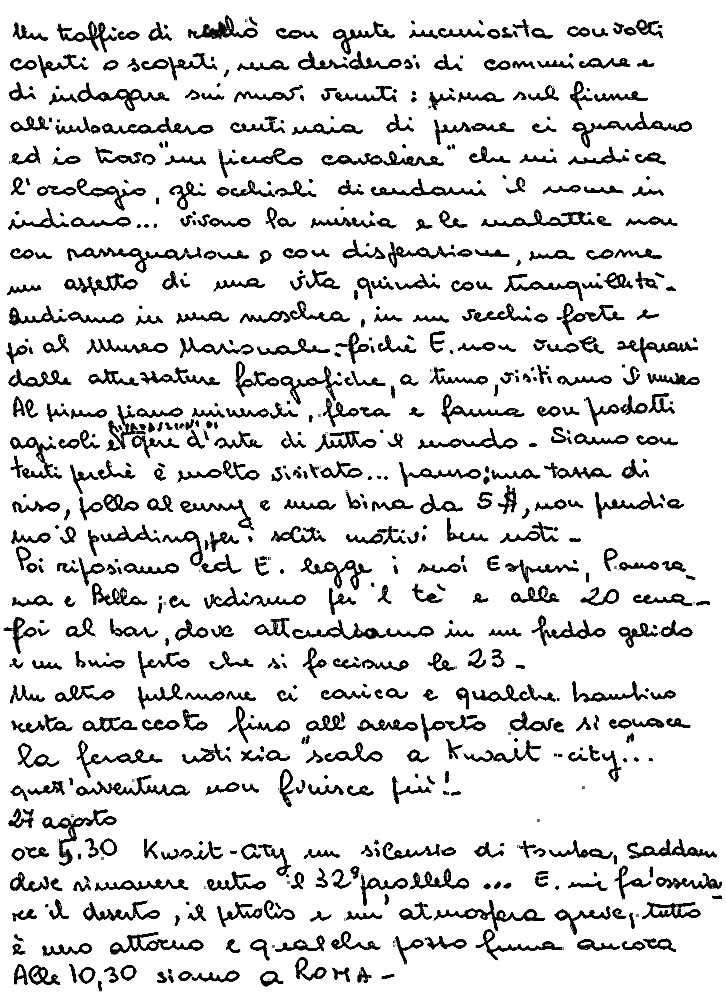 Un traffico di risciò con gente incuriosita con volti
coperti o scoperti, ma desiderosi di comunicare e
di indagare sui nuovi venuti: prima sul fiume
all'imbarcadero centinaia di persone ci guardano
ed io trovo "un piccolo cavaliere" che mi indica
l'orologio, gli occhiali dicendomi il nome in
indiano... vivono la miseria e le malattie non
con rassegnazione o con disperazione, ma come
un aspetto di una vita, quindi con tranquillità -
Andiamo in una moschea, in un vecchio forte e
poi al Museo Nazionale - poichè E. non vuole separarsi
dalle attrezzature fotografiche, a turno, visitiamo il museo
Al primo piano minerali, flora e fauna con prodotti
agricoli e riproduzioni di opere d'arte di tutto il mondo - Siamo con
tenti perchè è molto visitato... pranzo: una tazza di
riso, pollo al curry e una birra da 5 $, non prendia
mo il pudding, per i soliti motivi ben noti -
Poi riposiamo ed E. legge i suoi Espressi, Panora
ma e Bella; ci vediamo per il tè e alle 20 cena -
poi al bar, dove attendiamo in un freddo gelido
e un buio pesto che si facciano le 23 -
Un altro pullmann ci carica e qualche bambino
resta attaccato fino all'aereoporto dove si conosce
la ferale notizia "scalo a Kuwait-city"...
quest'avventura non finisce più! -
27 agosto
ore 5.30 Kuwait-City un silenzio di tomba, Saddam
deve rimanere entro il 32° parallelo ... E. mi fa osserva
re il deserto, il petrolio e un'atmosfera greve, tutto
è nero attorno e qualche pozzo fuma ancora
Alle 10,30 siamo a ROMA -